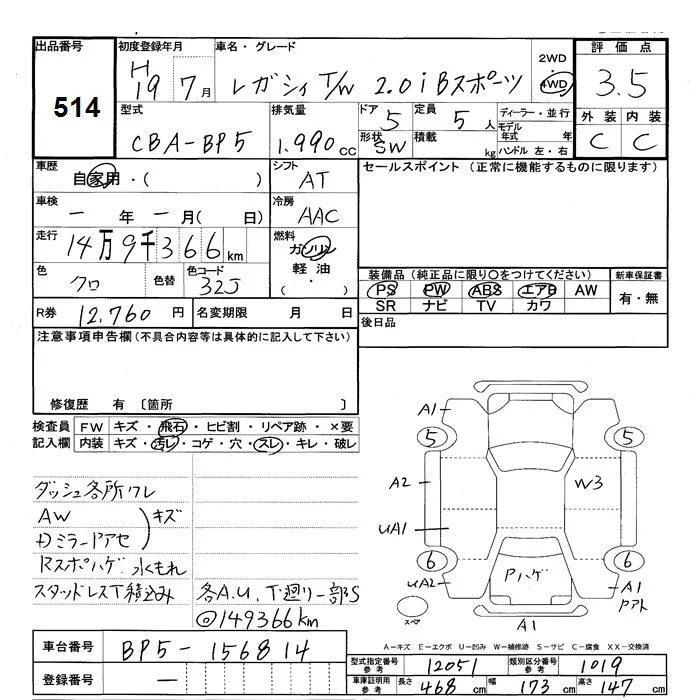 出品番号
514
初度登録年月
H19 7月
車名・グレード
レガシィ T/W 2.0i Bスポーツ
2WD・
4WD
評価点
3.5
外装 内装
C C
型式
CBA-BP5
排気量
1.990cc
ドア 5
形状 SW
定員 5人
積載 kg
ディーラー・並行
モデル年式 年
ハンドル 左・右
車歴
自家用・( )
シフト
AT
セールスポイント (正常に機能するものに限ります)
車検
― 年 ― 月( 日)
冷房
AAC
走行
14万9千366km
燃料
ガソリン
軽油
( ・ )
色
クロ
色替
色コード
32J
装備品(純正品に限り○をつけてください)
PS PW ABS エアB AW
SR ナビ TV カワ
新車保証書
有・無
R券 12,760円
名変期限 月 日
後日品
注意事項申告欄(不具合内容等は具体的に記入して下さい)
修復歴 有 〔箇所 〕
検査員記入欄
FW キズ・飛石・ヒビ割・リペア跡・×要
内装 キズ・汚レ・コゲ・穴・スレ・キレ・破レ
ダッシュ各所ワレ
AW
Dミラードアセ
キズ
Rスポハゲ 水もれ
スタッドレスT積込み
各A.U.T廻リ一部S
◎149366km
A1
5
5
A2
W3
UA1
6
6
UA2
Pハゲ
A1
アト
スペア
A1
A-キズ E-エクボ U-凹み W-補修跡 S-サビ C-腐食 XX-交換済
車台番号
BP5-156814
登録番号
―
型式指定番号 参考 12051
類別区分番号 参考 1019
車庫証明用 参考 長さ 468cm 幅 173cm 高さ 147cm